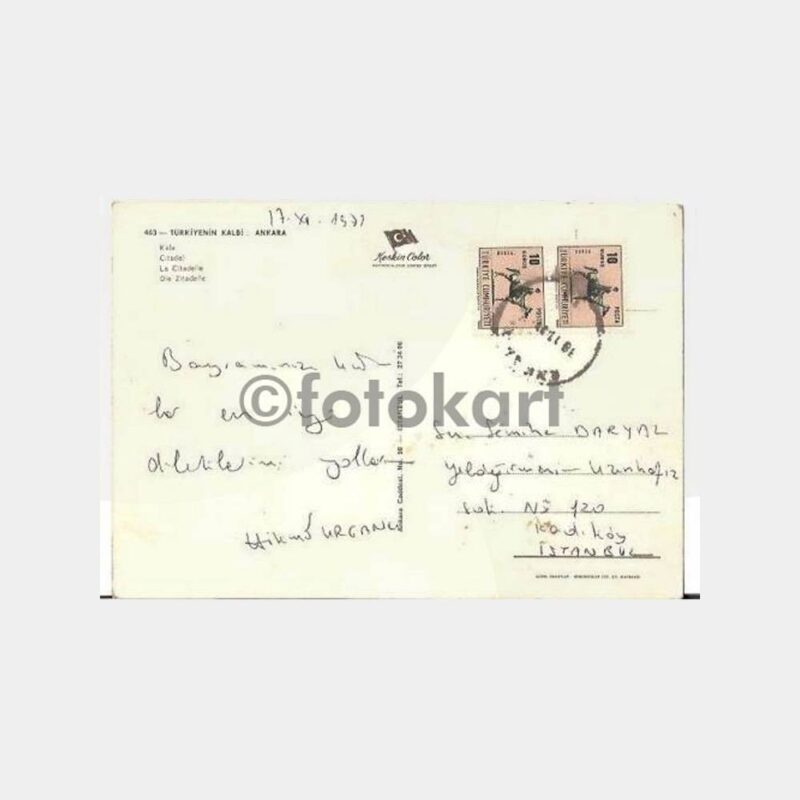 17-XI-1971
403 — TÜRKİYENİN KALBİ : ANKARA
Kale
Citadel
La Citadelle
Die Zitadelle
Keskin Color
10
KURUŞ
TÜRKİYE CUMHURİYETİ
POSTA
10
KURUŞ
TÜRKİYE CUMHURİYETİ
POSTA
Bayramınızı
en iyi
dileklerimi yollarım
Hikmet URGANCI
Ankara Caddesi, No. 98 — İSTANBUL Tel.:
©fotokart
Sn. Semiha DARYAL
Yeldeğirmeni Uzunhafız
Sok. No 120
Kadıköy
İSTANBUL